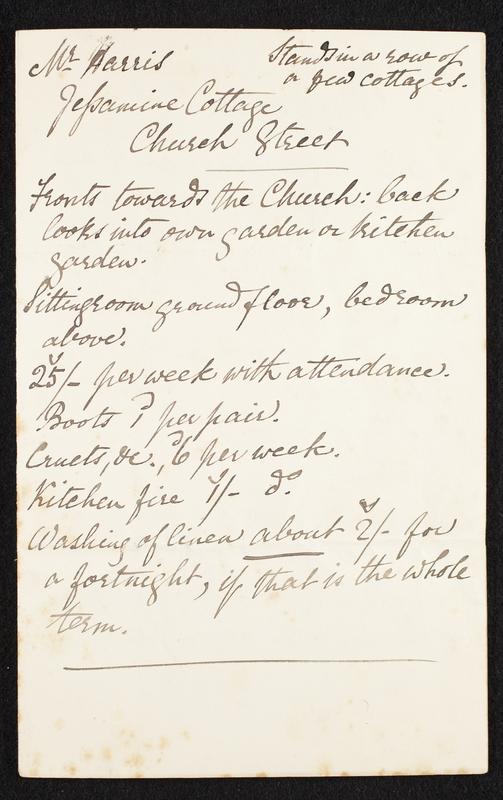 Mr Harris
Stands in a row of
a few cottages.
Jessamine Cottage
Church Street
Fronts towards the Church: back
looks into own garden or kitchen
garden.
Sittingroom ground floor, bedroom
above.
25/- per week with attendance.
Boots 1d per pair.
Cruets, &c., 6d per week.
Kitchen fire 1/- do.
Washing of linen about 2/- for
a fortnight, if that is the whole
term.